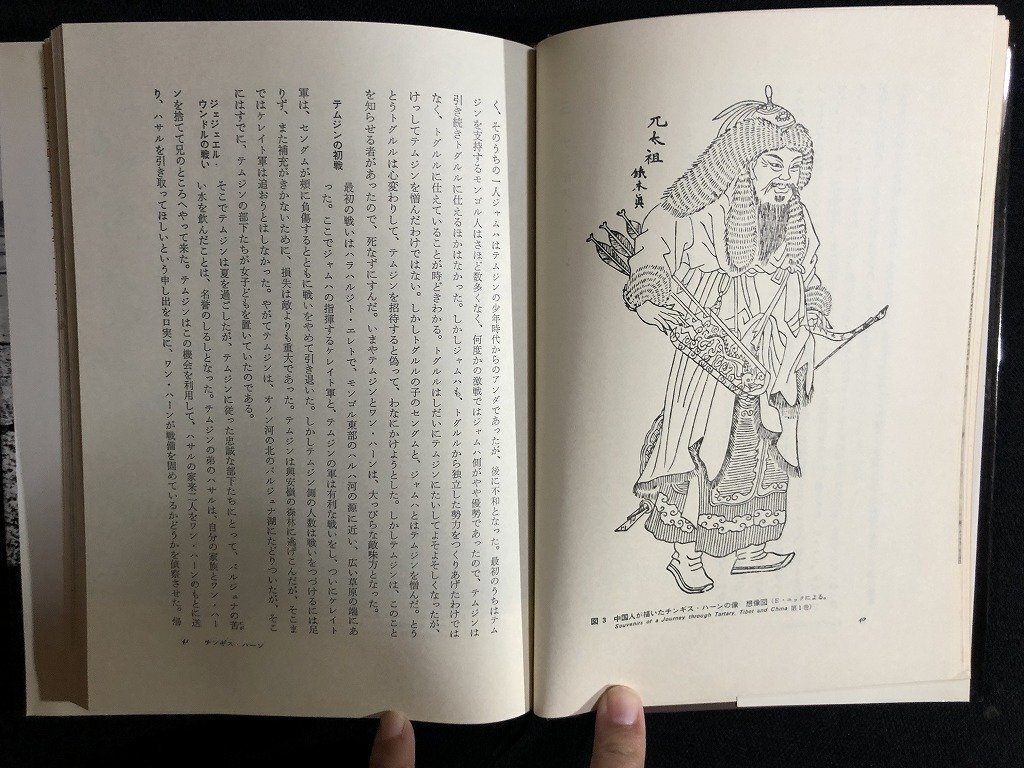 元太祖
鉄木真
図3 中国人が描いたチンギス・ハーンの像 想像図（E・ユックによる。
Souvenirs of a Journey through Tartary, Tibet and China 第1巻）
40
く、そのうちの一人ジャムハはテムジンの少年時代からのアンダであったが、後に不和となった。最初のうちはテム
ジンを支持するモンゴル人はさほど数多くなく、何度かの激戦ではジャムハ側がやや優勢であったので、テムジンは
引き続きトグルルに仕えるほかはなかった。しかしジャムハも、トグルルから独立した勢力をつくりあげたわけでは
なく、トグルルに仕えていることが時どきわかる。トグルルはしだいにテムジンにたいしてよそよそしくなったが、
けっしてテムジンを憎んだわけではない。しかしトグルルの子のセングムと、ジャムハとはテムジンを憎んだ。とう
とうトグルルは心変わりして、テムジンを招待すると偽って、わなにかけようとした。しかしテムジンは、このこと
を知らせる者があったので、死なずにすんだ。いまやテムジンとワン・ハーンは、大っぴらな敵味方となった。
テムジンの初戦
最初の戦いはハラハルジト・エレトで、モンゴル東部のハルハ河の源に近い、広い草原の端にあ
った。ここでジャムハの指揮するケレイト軍と、テムジンの軍は有利な戦いをし、ついにケレイト
軍は、センダムが頬に負傷するとともに戦いをやめて引き退いた。しかしテムジン側の人数は戦いをつづけるには足
りず、また補充がきかないために、損失は敵よりも重大であった。テムジンは興安嶺の森林に逃げこんだが、そこま
ではケレイト軍は追おうとはしなかった。やがてテムジンは、オノン河の北のバルジュナ湖にたどりついたが、そこ
にはすでに、テムジンの部下たちが女子どもを置いていたのである。
ジェジェエル・
ウンドルの戦い
そこでテムジンは夏を過ごしたが、テムジンに従った忠誠な部下たちにとって、バルジュナの苦
い水を飲んだことは、名誉のしるしとなった。テムジンの弟のハサルは、自分の家族とワン・ハー
ンを捨てて兄のところへやって来た。テムジンはこの機会を利用して、ハサルの家来二人をワン・ハーンのもとに送
り、ハサルを引き取ってほしいという申し出を口実に、ワン・ハーンが戦備を固めているかどうかを偵察させた。帰
41 チンギス・ハーン